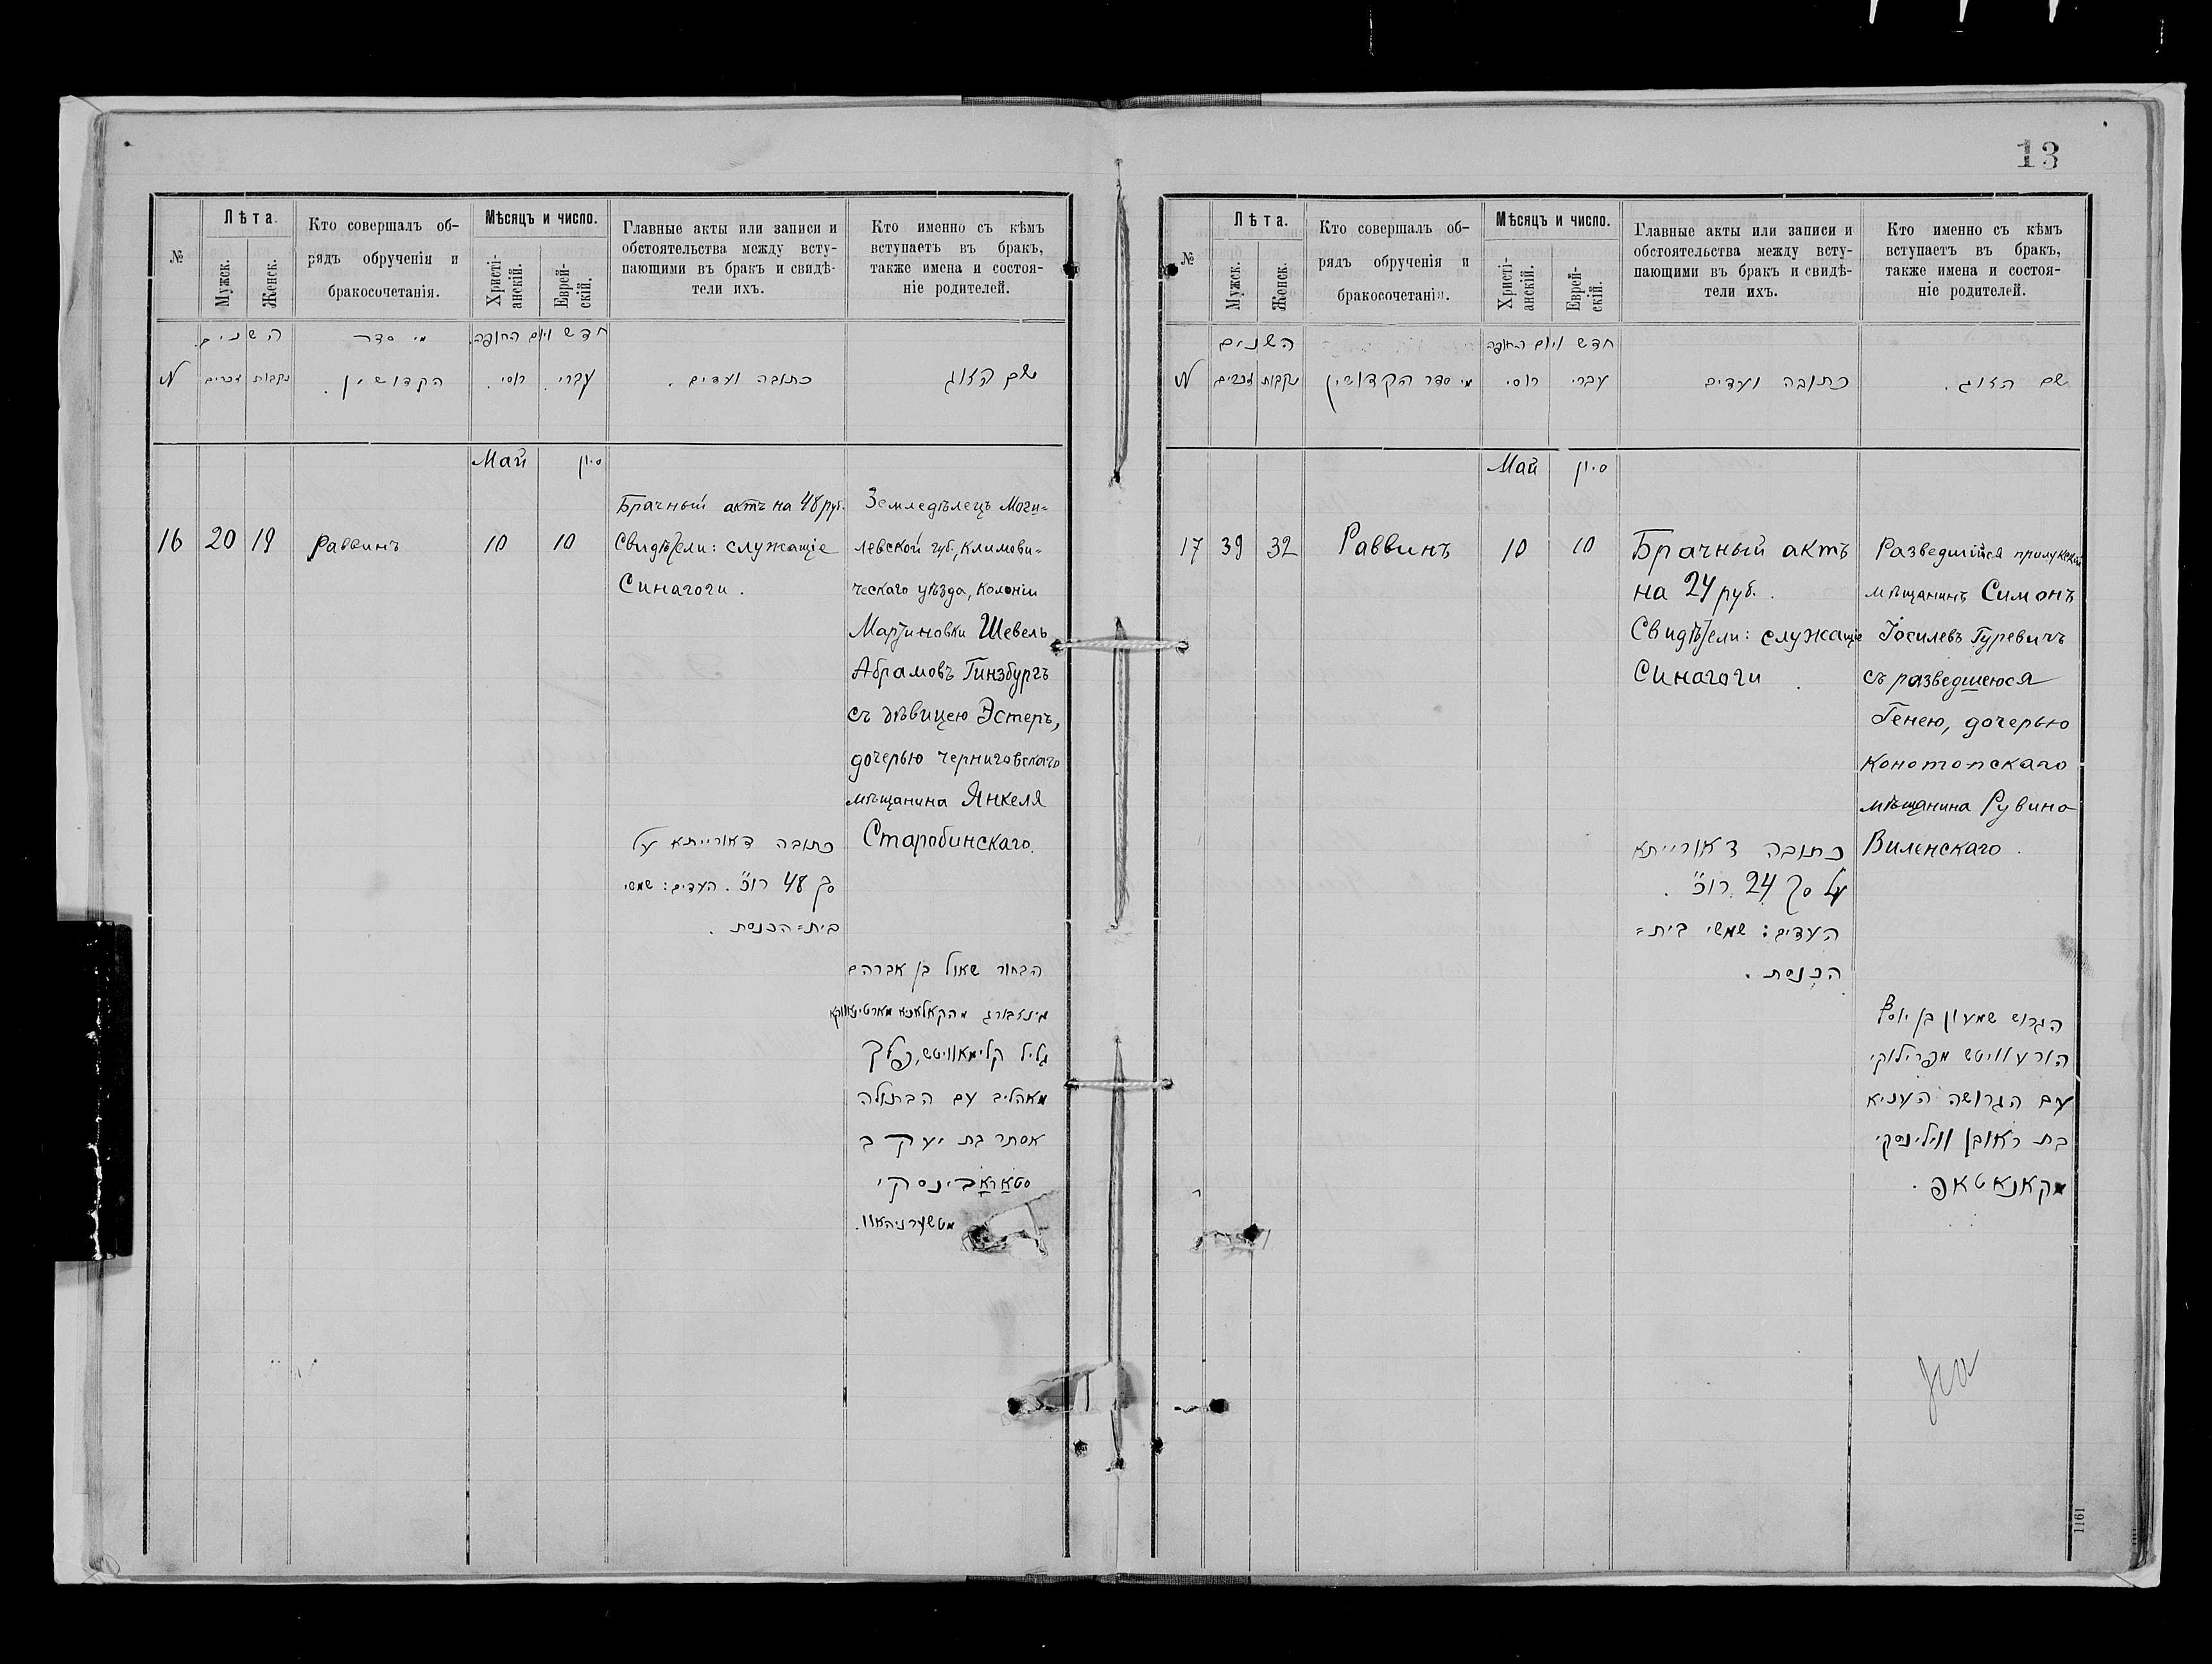 13
№
Лѣта.
Мужск.
Женск.
Кто совершалъ об-
рядъ обрученія и
бракосочетанія.
Мѣсяцъ и число.
Христі-
анскій.
Еврей-
скій.
Главные акты или записи и
обстоятельства между всту-
пающими въ бракъ и свидѣ-
тели ихъ.
Кто именно съ кѣмъ
вступаетъ въ бракъ,
также имена и состоя-
ніе родителей.
השנים
מי סדר
חדש ויום החופה.
N
זכרים
נקבות
הקדושין.
רוסי.
עברי.
כתובה ועדים.
שם הזוג
Май
סיון
16
20
19
Раввинъ
10
10
Брачный актъ на 48 руб.
Свидѣтели: служащіе
Синагоги.
כתובה דאורייתא על
סך 48 רוכ״. העדים: שמשי
בית=הכנסת.
Земледѣлецъ Моги=
левской губ, Климови=
ческаго уѣзда, колоніи
Мартиновки Шевель
Абрамовъ Гинзбургъ
съ дѣвицею Эстеръ,
дочерью черниговскаго
мѣщанина Янкеля
Старобинскаго.
הבחור שאול בן אברהם
גינזבורג מהקאלאניא מארטינאווקא
גליל קלימאוויטש, פלך
מאהליב עם הבתולה
אסתר בת יעקב
סטאראבינסקי
מטשערניהאוו.
№
Лѣта.
Мужск.
Женск.
Кто совершалъ об-
рядъ обрученія и
бракосочетанія.
Мѣсяцъ и число.
Христі-
анскій.
Еврей-
скій.
Главные акты или записи и
обстоятельства между всту-
пающими въ бракъ и свидѣ-
тели ихъ.
Кто именно съ кѣмъ
вступаетъ въ бракъ,
также имена и состоя-
ніе родителей.
השנים
חדש ויום החופה
N
זכרים
נקבות
מי סדר הקדושין
רוסי
עברי
כתובה ועדים
שם הזוג.
Май
סיון
17
39
32
Раввинъ
10
10
Брачный актъ
на 24 руб.
Свидѣтели: служащіе
Синагоги.
כתובה דאורייתא
על סך 24 רוכ״.
העדים: שמשי בית=
הכנסת.
Разведшійся прилукскій
мѣщанинъ Симонъ
Іосилевъ Гуревичъ
съ разведшеюся
Генею, дочерью
Конотопскаго
мѣщанина Рувина
Виленскаго.
הגרוש שמעון בן יוסף
הורעוויטש מפרילוקי
עם הגרושה העניא
בת ראובן ווילינסקי
מקאנאטאפ.
1161